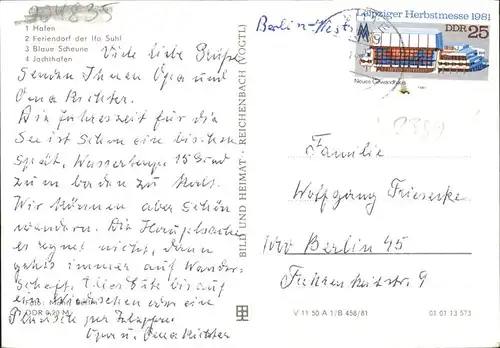 204835
1 Hafen
2 Feriendorf der Ifa Suhl
3 Blaue Scheune
4 Jachthafen
Viele liebe Grüße
senden Ihnen Opa und
Oma Richter.
Die Jahreszeit für die
See ist schon eine bis-chen
spät, Wassertemp. 15 Grad
zum baden zu kalt.
Wir können aber schön
wandern. Die Hauptsache
es regnet nicht, dann
gehts immer auf Wander-
schaft. Alles Gute bis auf
ein Wiedersehen oder eine
Opa u. Oma Richter
DDR 0,20 M
BILD UND HEIMAT · REICHENBACH (VOGTL)
Berlin-West
Leipziger Herbstmesse 1981
DDR 25
Neues Gewandhaus
1981
Familie
Wolfgang Frieseke
Berlin 45
9
V 11 50 A 1/B 458/81
01 01 13 573